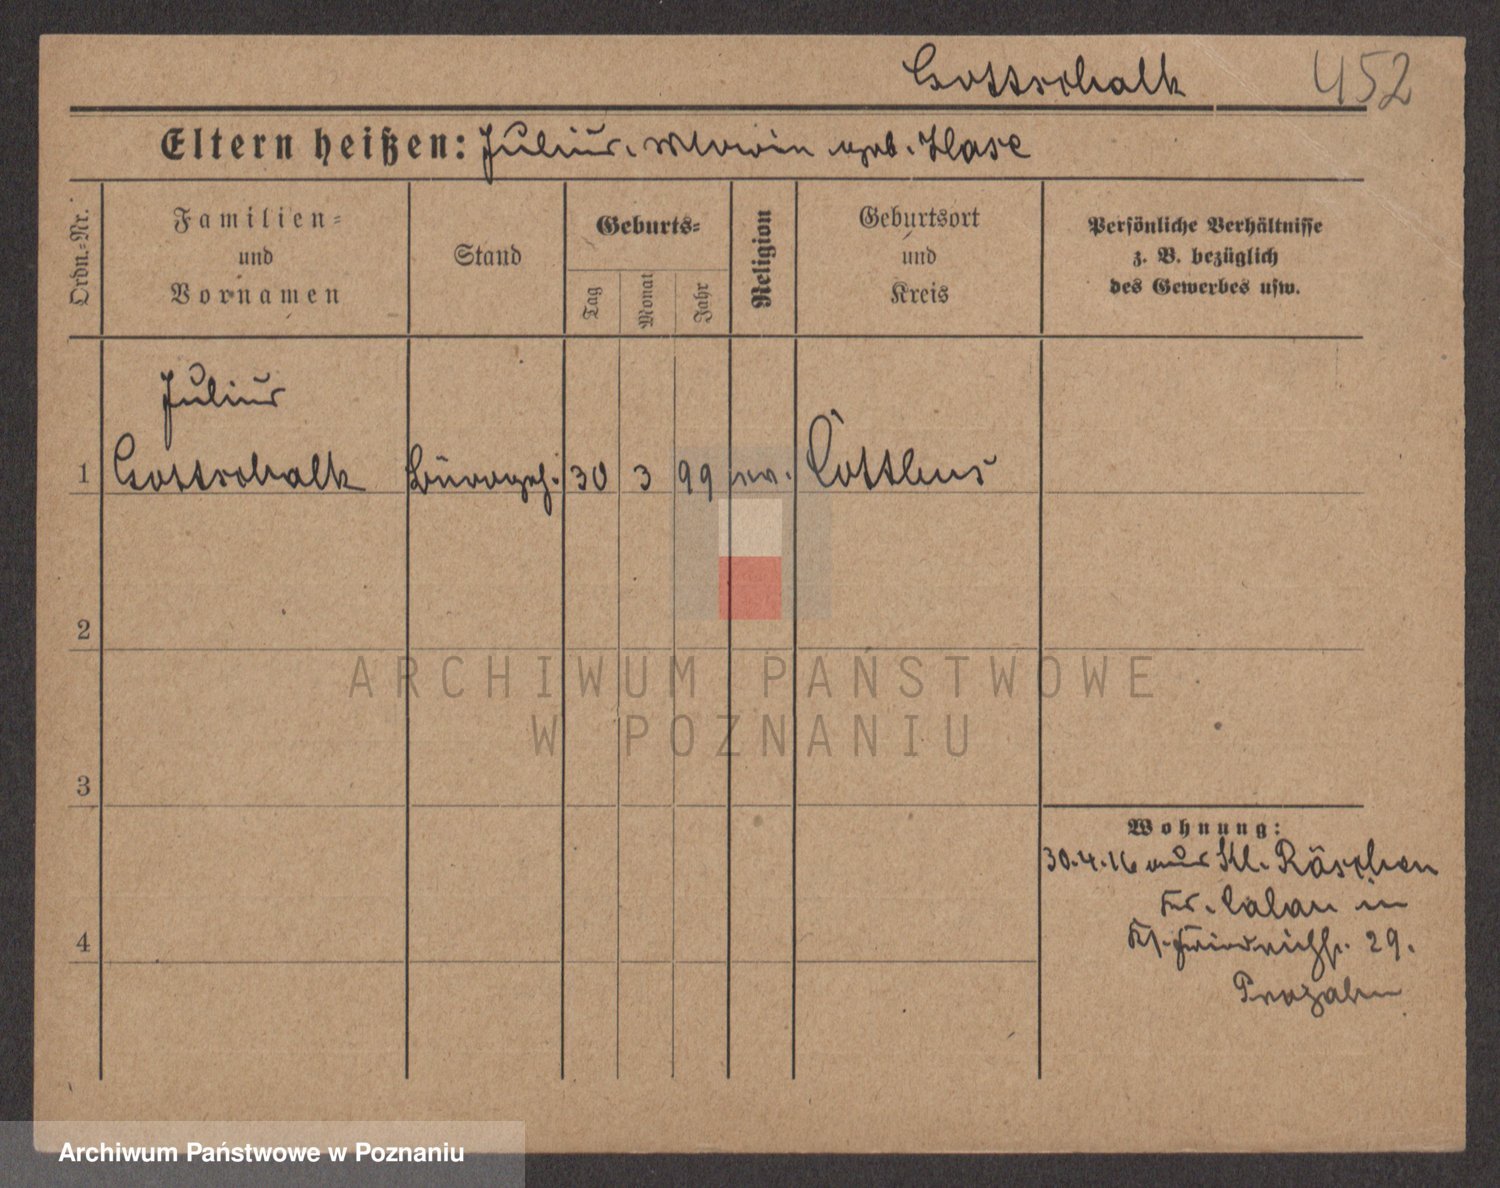 Gottschalk 452
Eltern heißen: Julius. Marie geb. Hase
Ordn.-Nr.
Familien- und Vornamen
Stand
Geburts-
Tag
Monat
Jahr
Religion
Geburtsort und Kreis
Persönliche Verhältnisse
z. B. bezüglich
des Gewerbes usw.
Julius
1 Gottschalk Bürogeh. 30 3 99 ev. Cottbus
2
3
4
Wohnung:
30.4.16 aus Kl. Räschen
Kr. Calau in
Friedrichstr. 29.
ARCHIWUM PAŃSTWOWE
W POZNANIU
Archiwum Państwowe w Poznaniu